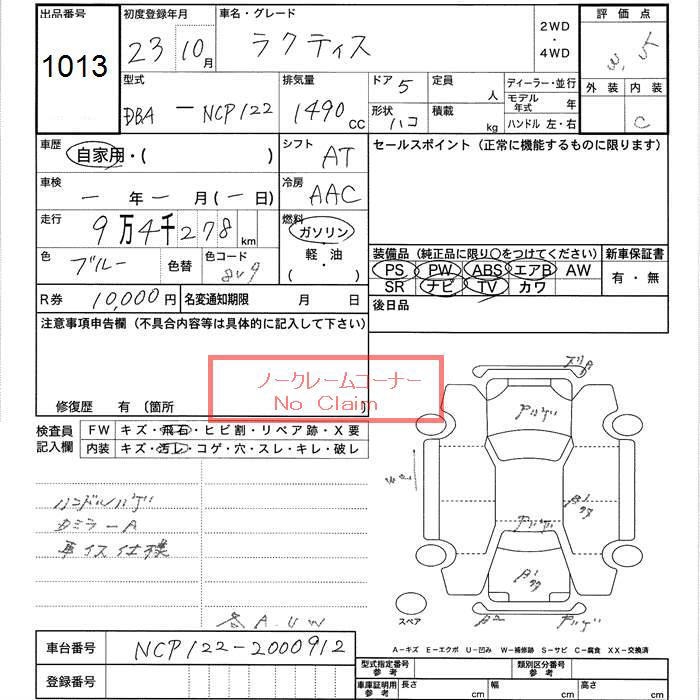 出品番号 初度登録年月 車名・グレード 2WD ・ 4WD 評価点
1013 23年10月 ラクティス 3.5
型式 排気量 ドア 5 定員 人 ディーラー・並行 外装 内装
DBA — NCP122 1490 CC 形状 ハコ 積載 kg モデル年式 年 C
ハンドル 左・右
車歴 自家用・( ) シフト AT セールスポイント(正常に機能するものに限ります)
車検 — 年 — 月(— 日) 冷房 AAC
走行 9万4千278km 燃料 ガソリン・軽油・( )
色 ブルー 色替 色コード 8V9
装備品(純正品に限り○をつけてください) 新車保証書
PS PW ABS エアB AW 有・無
SR ナビ TV カワ
R券 10,000円 名変通知期限 月 日 後日品
注意事項申告欄(不具合内容等は具体的に記入して下さい)
ノークレームコーナー
No Claim
修復歴 有(箇所 )
検査員記入欄 FW キズ・飛石・ヒビ割・リペア跡・X要
内装 キズ・汚レ・コゲ・穴・スレ・キレ・破レ
ハンドルハゲ
車イス仕様
各A.UW
スペア
A−キズ E−エクボ U−凹み W−補修跡 S−サビ C−腐食 XX−交換済
車台番号 NCP122-2000912
型式指定番号 参考 類別区分番号 参考
登録番号
車庫証明用 参考 長さ cm 幅 cm 高さ cm